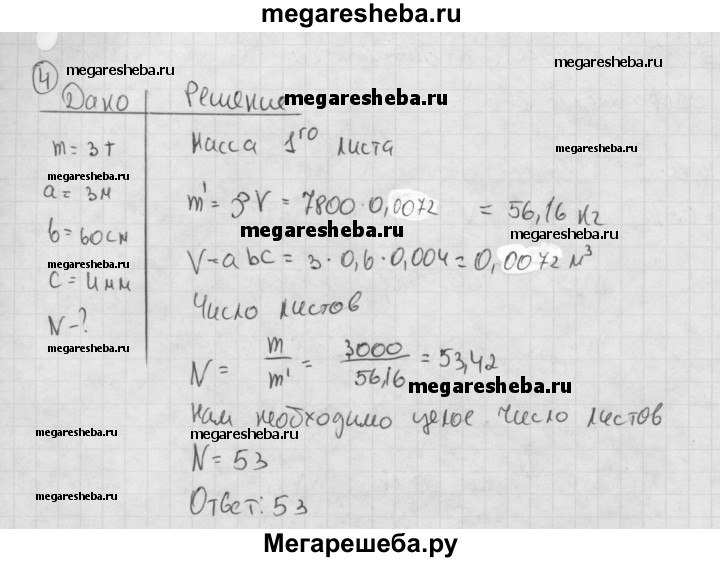 megaresheba.ru
megaresheba.ru
megaresheba.ru
4
Дано
Решение
megaresheba.ru
m = 3т
Масса 1го листа
megaresheba.ru
megaresheba.ru
a = 3м
m' = ρV = 7800·0,0072 = 56,16 кг
megaresheba.ru
megaresheba.ru
b = 60см
V = abc = 3·0,6·0,004 = 0,0072 м³
megaresheba.ru
c = 4мм
Число листов
N - ?
megaresheba.ru
N = m/m' = 3000/56,16 = 53,42
megaresheba.ru
Нам необходимо целое число листов
megaresheba.ru
megaresheba.ru
N = 53
megaresheba.ru
Ответ: 53
megaresheba.ru
Мегарешеба.ру